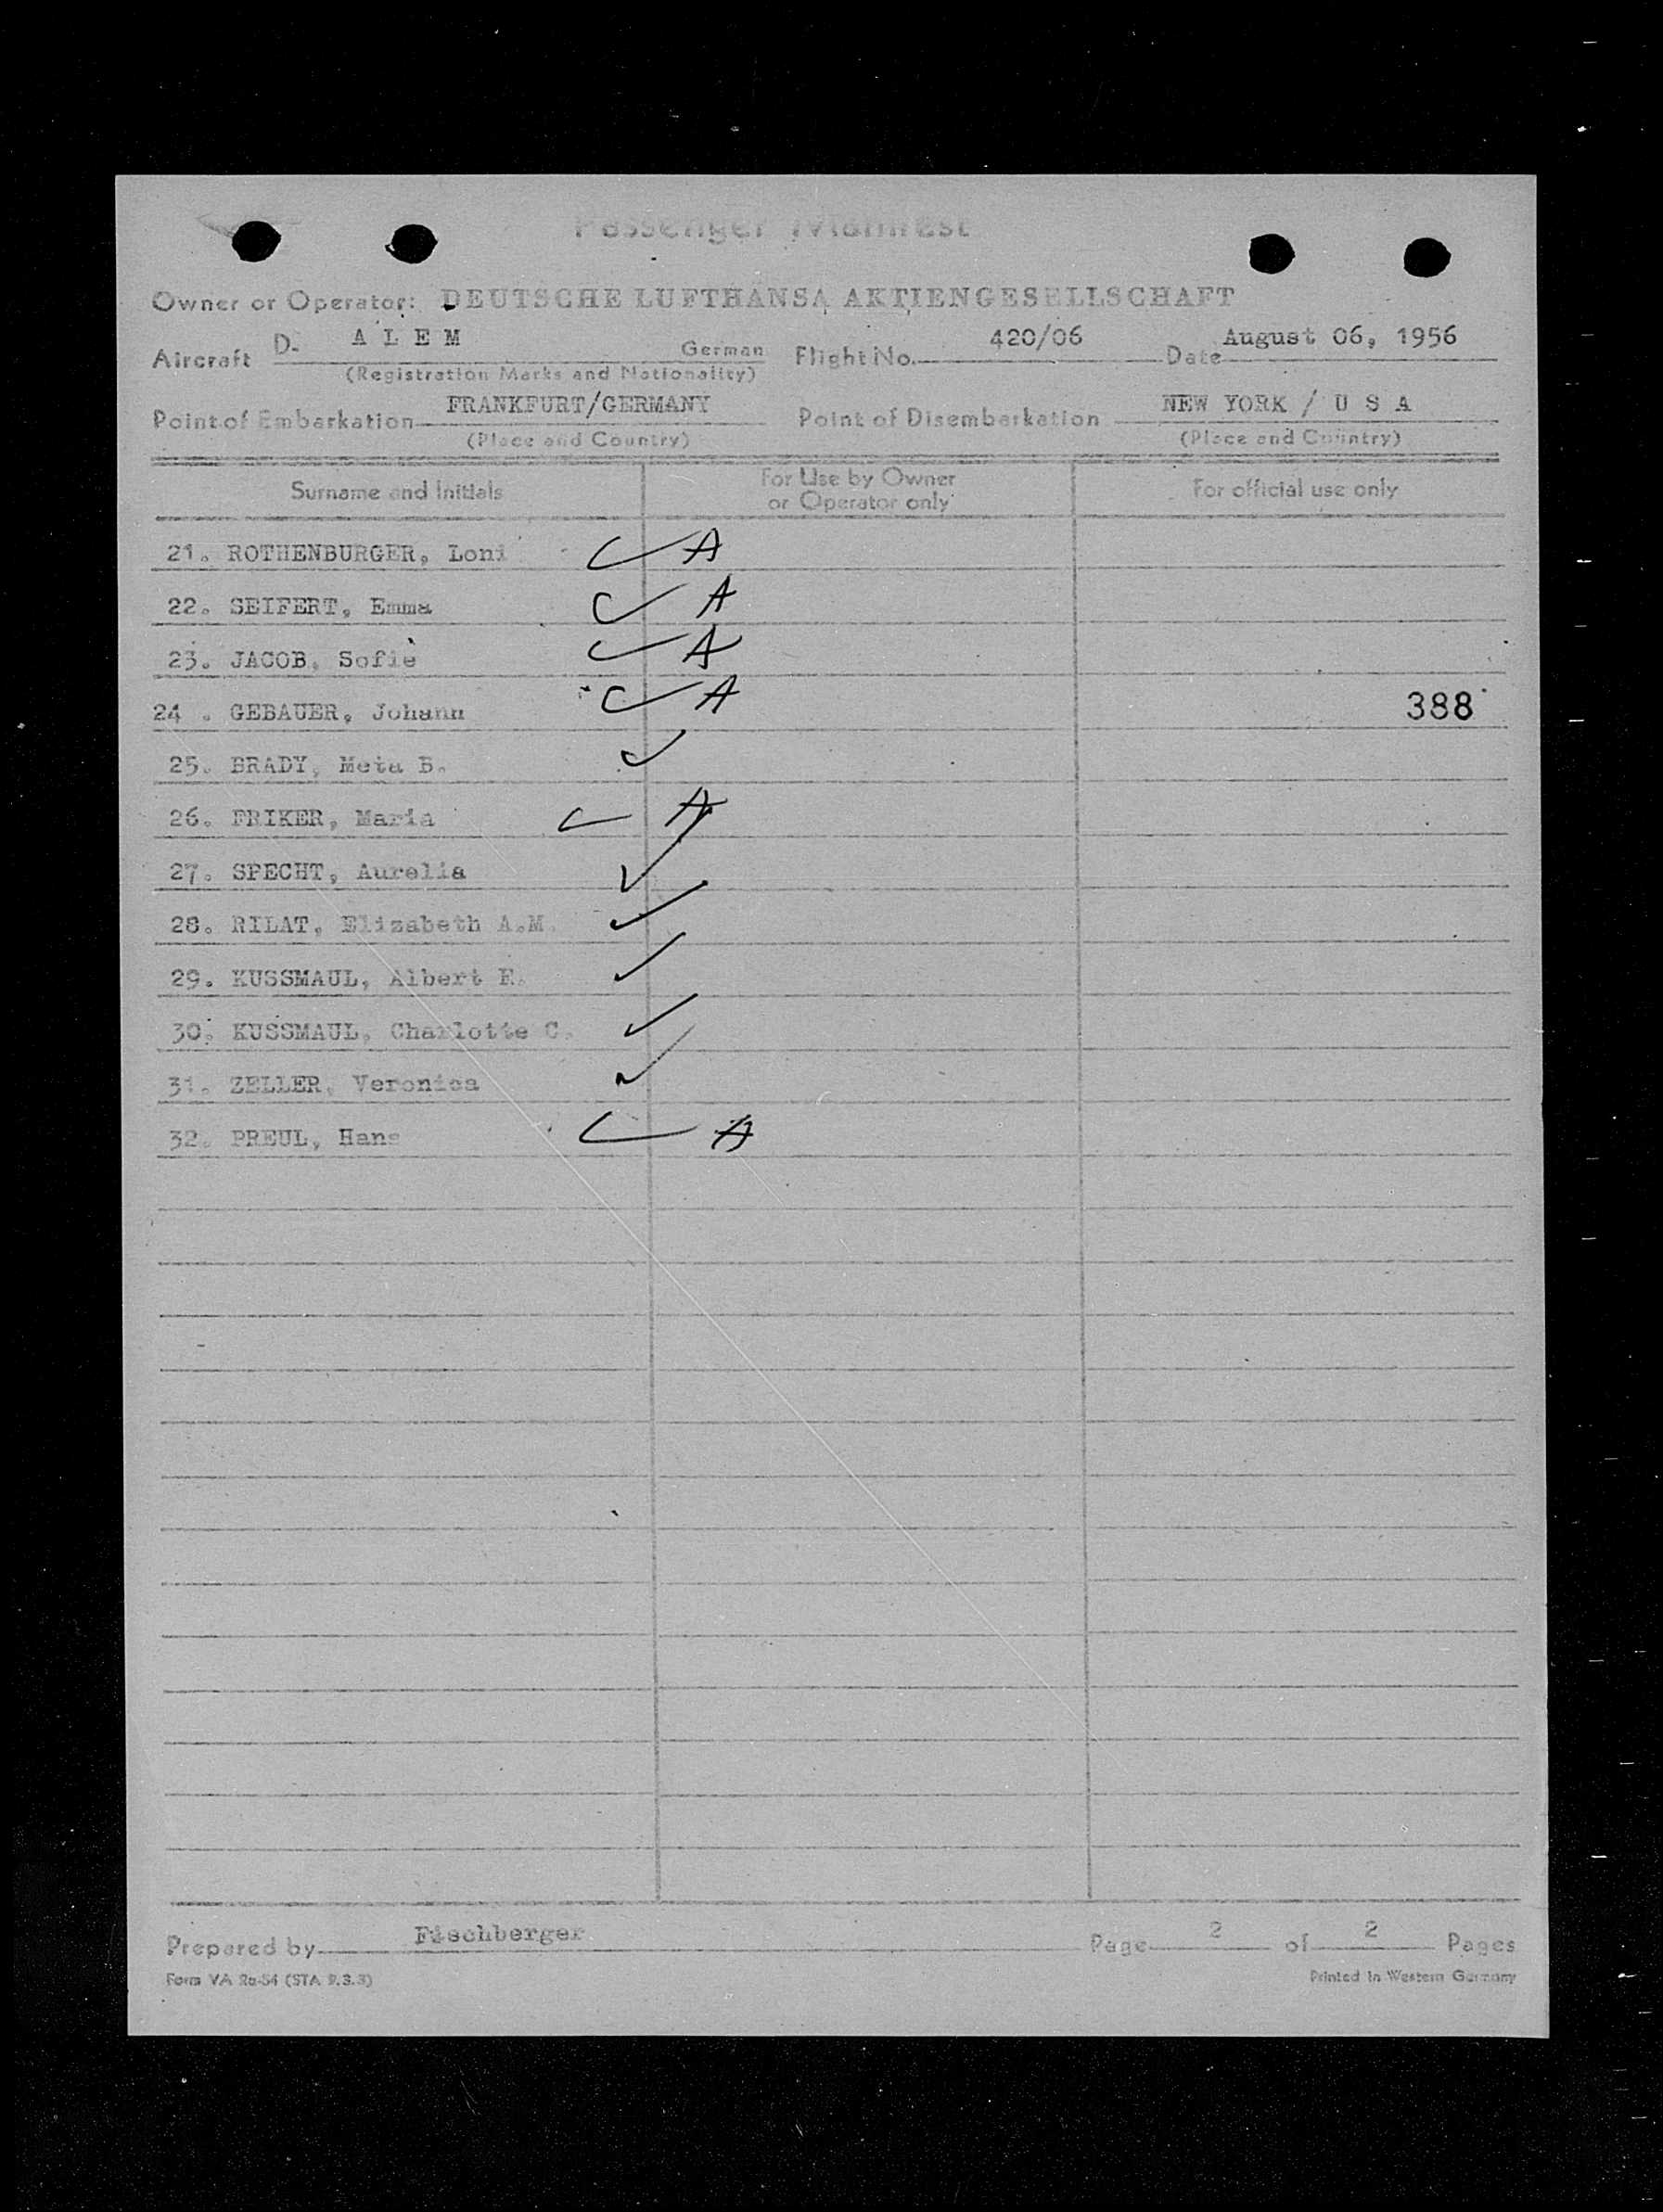 Passenger Manifest
Owner or Operator: DEUTSCHE LUFTHANSA AKTIENGESELLSCHAFT
Aircraft D- A L E M German Flight No. 420/06 Date August 06, 1956
(Registration Marks and Nationality)
Point of Embarkation FRANKFURT/GERMANY Point of Disembarkation NEW YORK / U S A
(Place and Country) (Place and Country)
Surname and Initials For Use by Owner or Operator only For official use only
21. ROTHENBURGER, Loni A
22. SEIFERT, Emma A
23. JACOB, Sofie A
24 . GEBAUER, Johann A 388
25. BRADY, Meta B.
26. FRIKER, Maria A
27. SPECHT, Aurelia
28. RILAT, Elizabeth A.M.
29. KUSSMAUL, Albert E.
30. KUSSMAUL, Charlotte C.
31. ZELLER, Veronica
32. PREUL, Hans A
Prepared by Fischberger Page 2 of 2 Pages
Form VA Ra-54 (STA 9.3.3) Printed in Western Germany